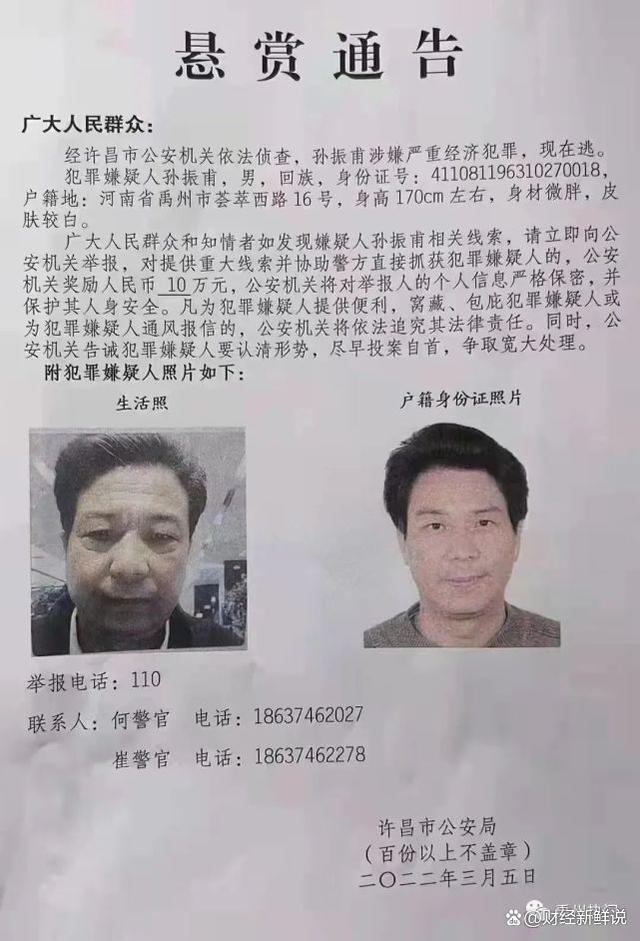 悬赏通告
广大人民群众：
经许昌市公安机关依法侦查，孙振甫涉嫌严重经济犯罪，现在逃。
犯罪嫌疑人孙振甫，男，回族，身份证号：411081196310270018，
户籍地：河南省禹州市荟萃西路16号，身高170cm左右，身材微胖，皮
肤较白。
广大人民群众和知情者如发现嫌疑人孙振甫相关线索，请立即向公
安机关举报，对提供重大线索并协助警方直接抓获犯罪嫌疑人的，公安
机关奖励人民币 10 万元，公安机关将对举报人的个人信息严格保密，并
保护其人身安全。凡为犯罪嫌疑人提供便利，窝藏、包庇犯罪嫌疑人或
为犯罪嫌疑人通风报信的，公安机关将依法追究其法律责任。同时，公
安机关告诫犯罪嫌疑人要认清形势，尽早投案自首，争取宽大处理。
附犯罪嫌疑人照片如下：
生活照
户籍身份证照片
举报电话：110
联系人：何警官 电话：18637462027
崔警官 电话：18637462278
许昌市公安局
（百份以上不盖章）
二〇二二年三月五日
@财经新鲜说